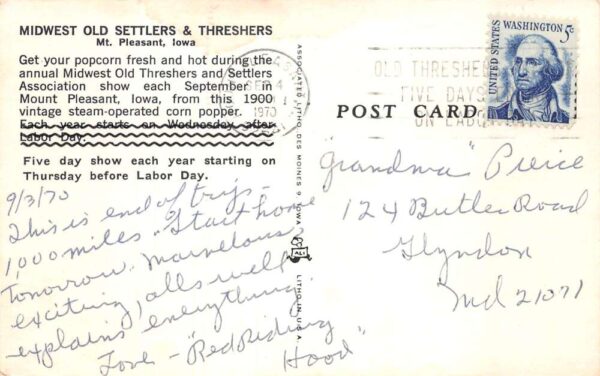 MIDWEST OLD SETTLERS & THRESHERS
Mt. Pleasant, Iowa
Get your popcorn fresh and hot during the
annual Midwest Old Threshers and Settlers
Association show each September in
Mount Pleasant, Iowa, from this 1900
vintage steam-operated corn popper.
Each year starts on Wednesday after
Labor Day.
Five day show each year starting on
Thursday before Labor Day.
9/3/70
This is end of trip -
1,000 miles. Start home
Tomorrow. Marvelous,
exciting, alls well
explains everything.
Love - "Red Riding
Hood"
ASSOCIATED LITHO, DES MOINES 9, IOWA
LITHO IN U.S.A.
SEP 4
1970
OLD THRESHE
FIVE DAYS
ON LABO
UNITED STATES
WASHINGTON 5c
POST CARD
Grandma" Pierce
124 Butler Road
Glyndon
Md 21071